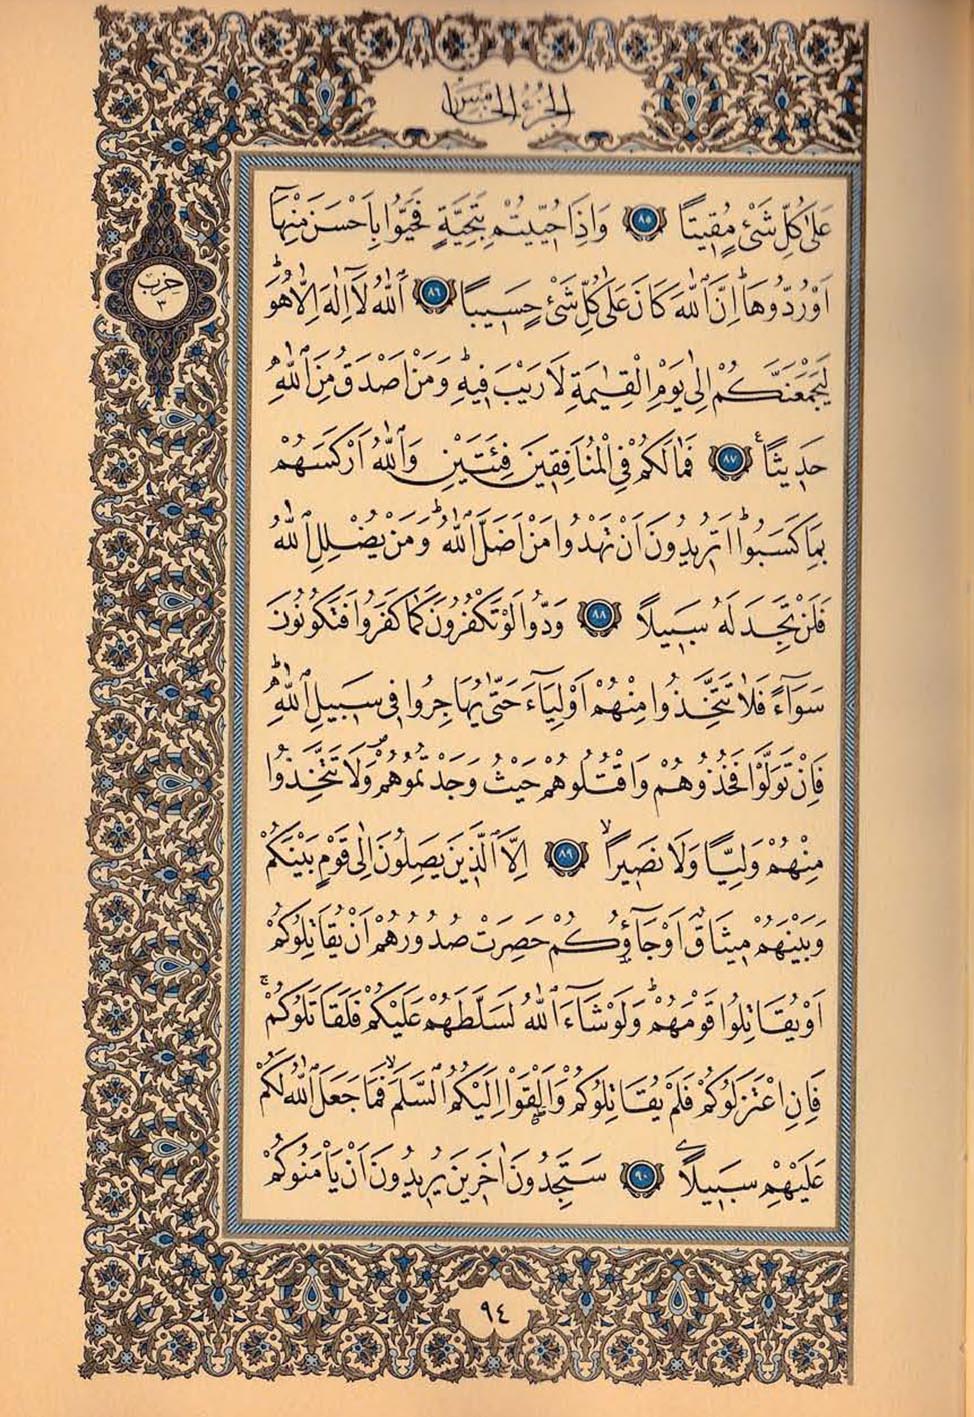 الجزء الخامس
عَلٰى كُلِّ شَىْءٍ مُقٖيتًا ﴿٨٥﴾ وَاِذَا حُيّٖيتُمْ بِتَحِيَّةٍ فَحَيُّوا بِاَحْسَنَ مِنْهَٓا
اَوْ رُدُّوهَاؕ اِنَّ اللّٰهَ كَانَ عَلٰى كُلِّ شَىْءٍ حَسٖيبًا ﴿٨٦﴾ اَللّٰهُ لَٓا اِلٰهَ اِلَّا هُوَؕ
لَيَجْمَعَنَّكُمْ اِلٰى يَوْمِ الْقِيٰمَةِ لَا رَيْبَ فٖيهِؕ وَمَنْ اَصْدَقُ مِنَ اللّٰهِ
حَدٖيثًا ﴿٨٧﴾ فَمَا لَكُمْ فِى الْمُنَافِقٖينَ فِئَتَيْنِ وَاللّٰهُ اَرْكَسَهُمْ
بِمَا كَسَبُواؕ اَتُرٖيدُونَ اَنْ تَهْدُوا مَنْ اَضَلَّ اللّٰهُؕ وَمَنْ يُضْلِلِ اللّٰهُ
فَلَنْ تَجِدَ لَهُ سَبٖيلًا ﴿٨٨﴾ وَدُّوا لَوْ تَكْفُرُونَ كَمَا كَفَرُوا فَتَكُونُونَ
سَوَٓاءً فَلَا تَتَّخِذُوا مِنْهُمْ اَوْلِيَٓاءَ حَتّٰى يُهَاجِرُوا فٖى سَبٖيلِ اللّٰهِؕ
فَاِنْ تَوَلَّوْا فَخُذُوهُمْ وَاقْتُلُوهُمْ حَيْثُ وَجَدْتُمُوهُمْࣕ وَلَا تَتَّخِذُوا
مِنْهُمْ وَلِيًّا وَلَا نَصٖيرًاۙ ﴿٨٩﴾ اِلَّا الَّذٖينَ يَصِلُونَ اِلٰى قَوْمٍ بَيْنَكُمْ
وَبَيْنَهُمْ مٖيثَاقٌ اَوْ جَٓاؤُ۫كُمْ حَصِرَتْ صُدُورُهُمْ اَنْ يُقَاتِلُوكُمْ
اَوْ يُقَاتِلُوا قَوْمَهُمْؕ وَلَوْ شَٓاءَ اللّٰهُ لَسَلَّطَهُمْ عَلَيْكُمْ فَلَقَاتَلُوكُمْۚ
فَاِنِ اعْتَزَلُوكُمْ فَلَمْ يُقَاتِلُوكُمْ وَاَلْقَوْا اِلَيْكُمُ السَّلَمَۙ فَمَا جَعَلَ اللّٰهُ لَكُمْ
عَلَيْهِمْ سَبٖيلًا ﴿٩٠﴾ سَتَجِدُونَ اٰخَرٖينَ يُرٖيدُونَ اَنْ يَأْمَنُوكُمْ
حزب
٣
٩٤